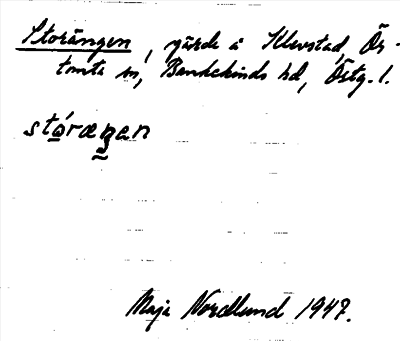 Storängen, gärde å Klevstad, Ör-
tomta sn, Bankekinds hd, Östg. l.
stóræŋen
Maja Nordlund 1947.